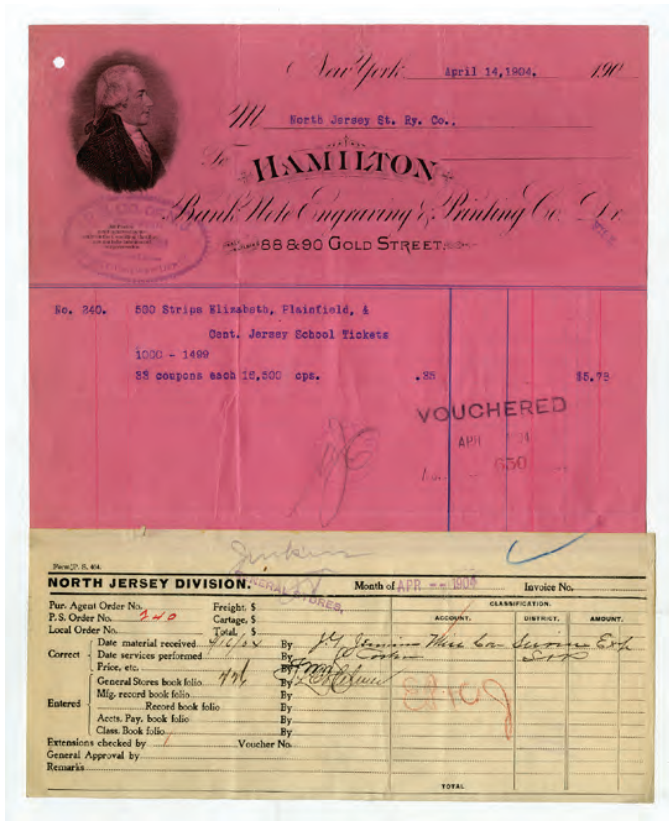 New York April 14,1904. 190
M North Jersey St. Ry. Co.,
To HAMILTON
Bank Note Engraving & Printing Co. Dr.
88 & 90 GOLD STREET.
No. 240. 500 Strips Elizabeth, Plainfield, &
Cent. Jersey School Tickets
1000 - 1499
33 coupons each 16,500 cps. .35 $5.78
VOUCHERED
APR
650
Jenkins
Form P. E. 404
NORTH JERSEY DIVISION. GENERAL STORES, Month of APR -- 1904 Invoice No.
CLASSIFICATION.
Pur. Agent Order No. Freight, $
ACCOUNT. DISTRICT. AMOUNT.
P. S. Order No. 240 Cartage, $
Local Order No. Total, $
Correct Date material received 4/16/04 By
Date services performed By
Price, etc. By
Entered General Stores book folio By
Mfg. record book folio By
Record book folio By
Accts. Pay. book folio By
Class. Book folio By
Extensions checked by Voucher No.
General Approval by
Remarks
TOTAL